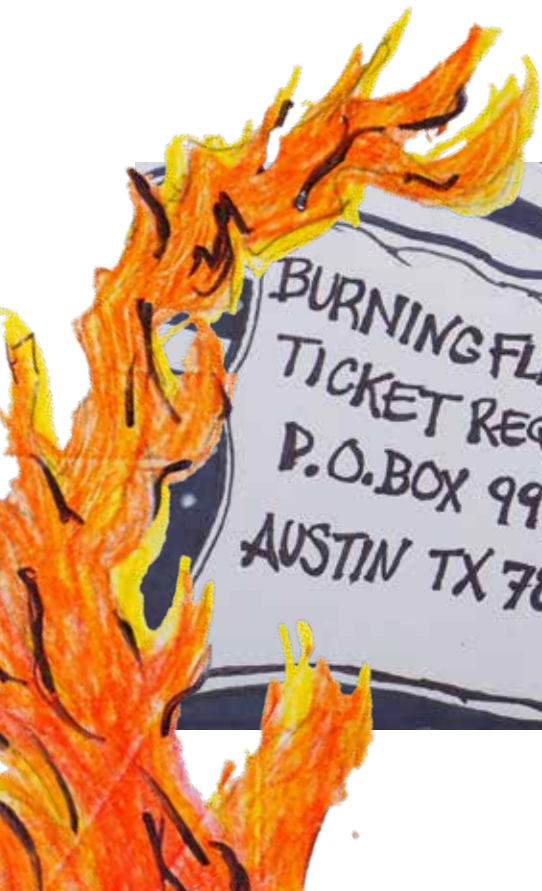 BURNING FL
TICKET REQ
P.O. BOX 99
AUSTIN TX 78